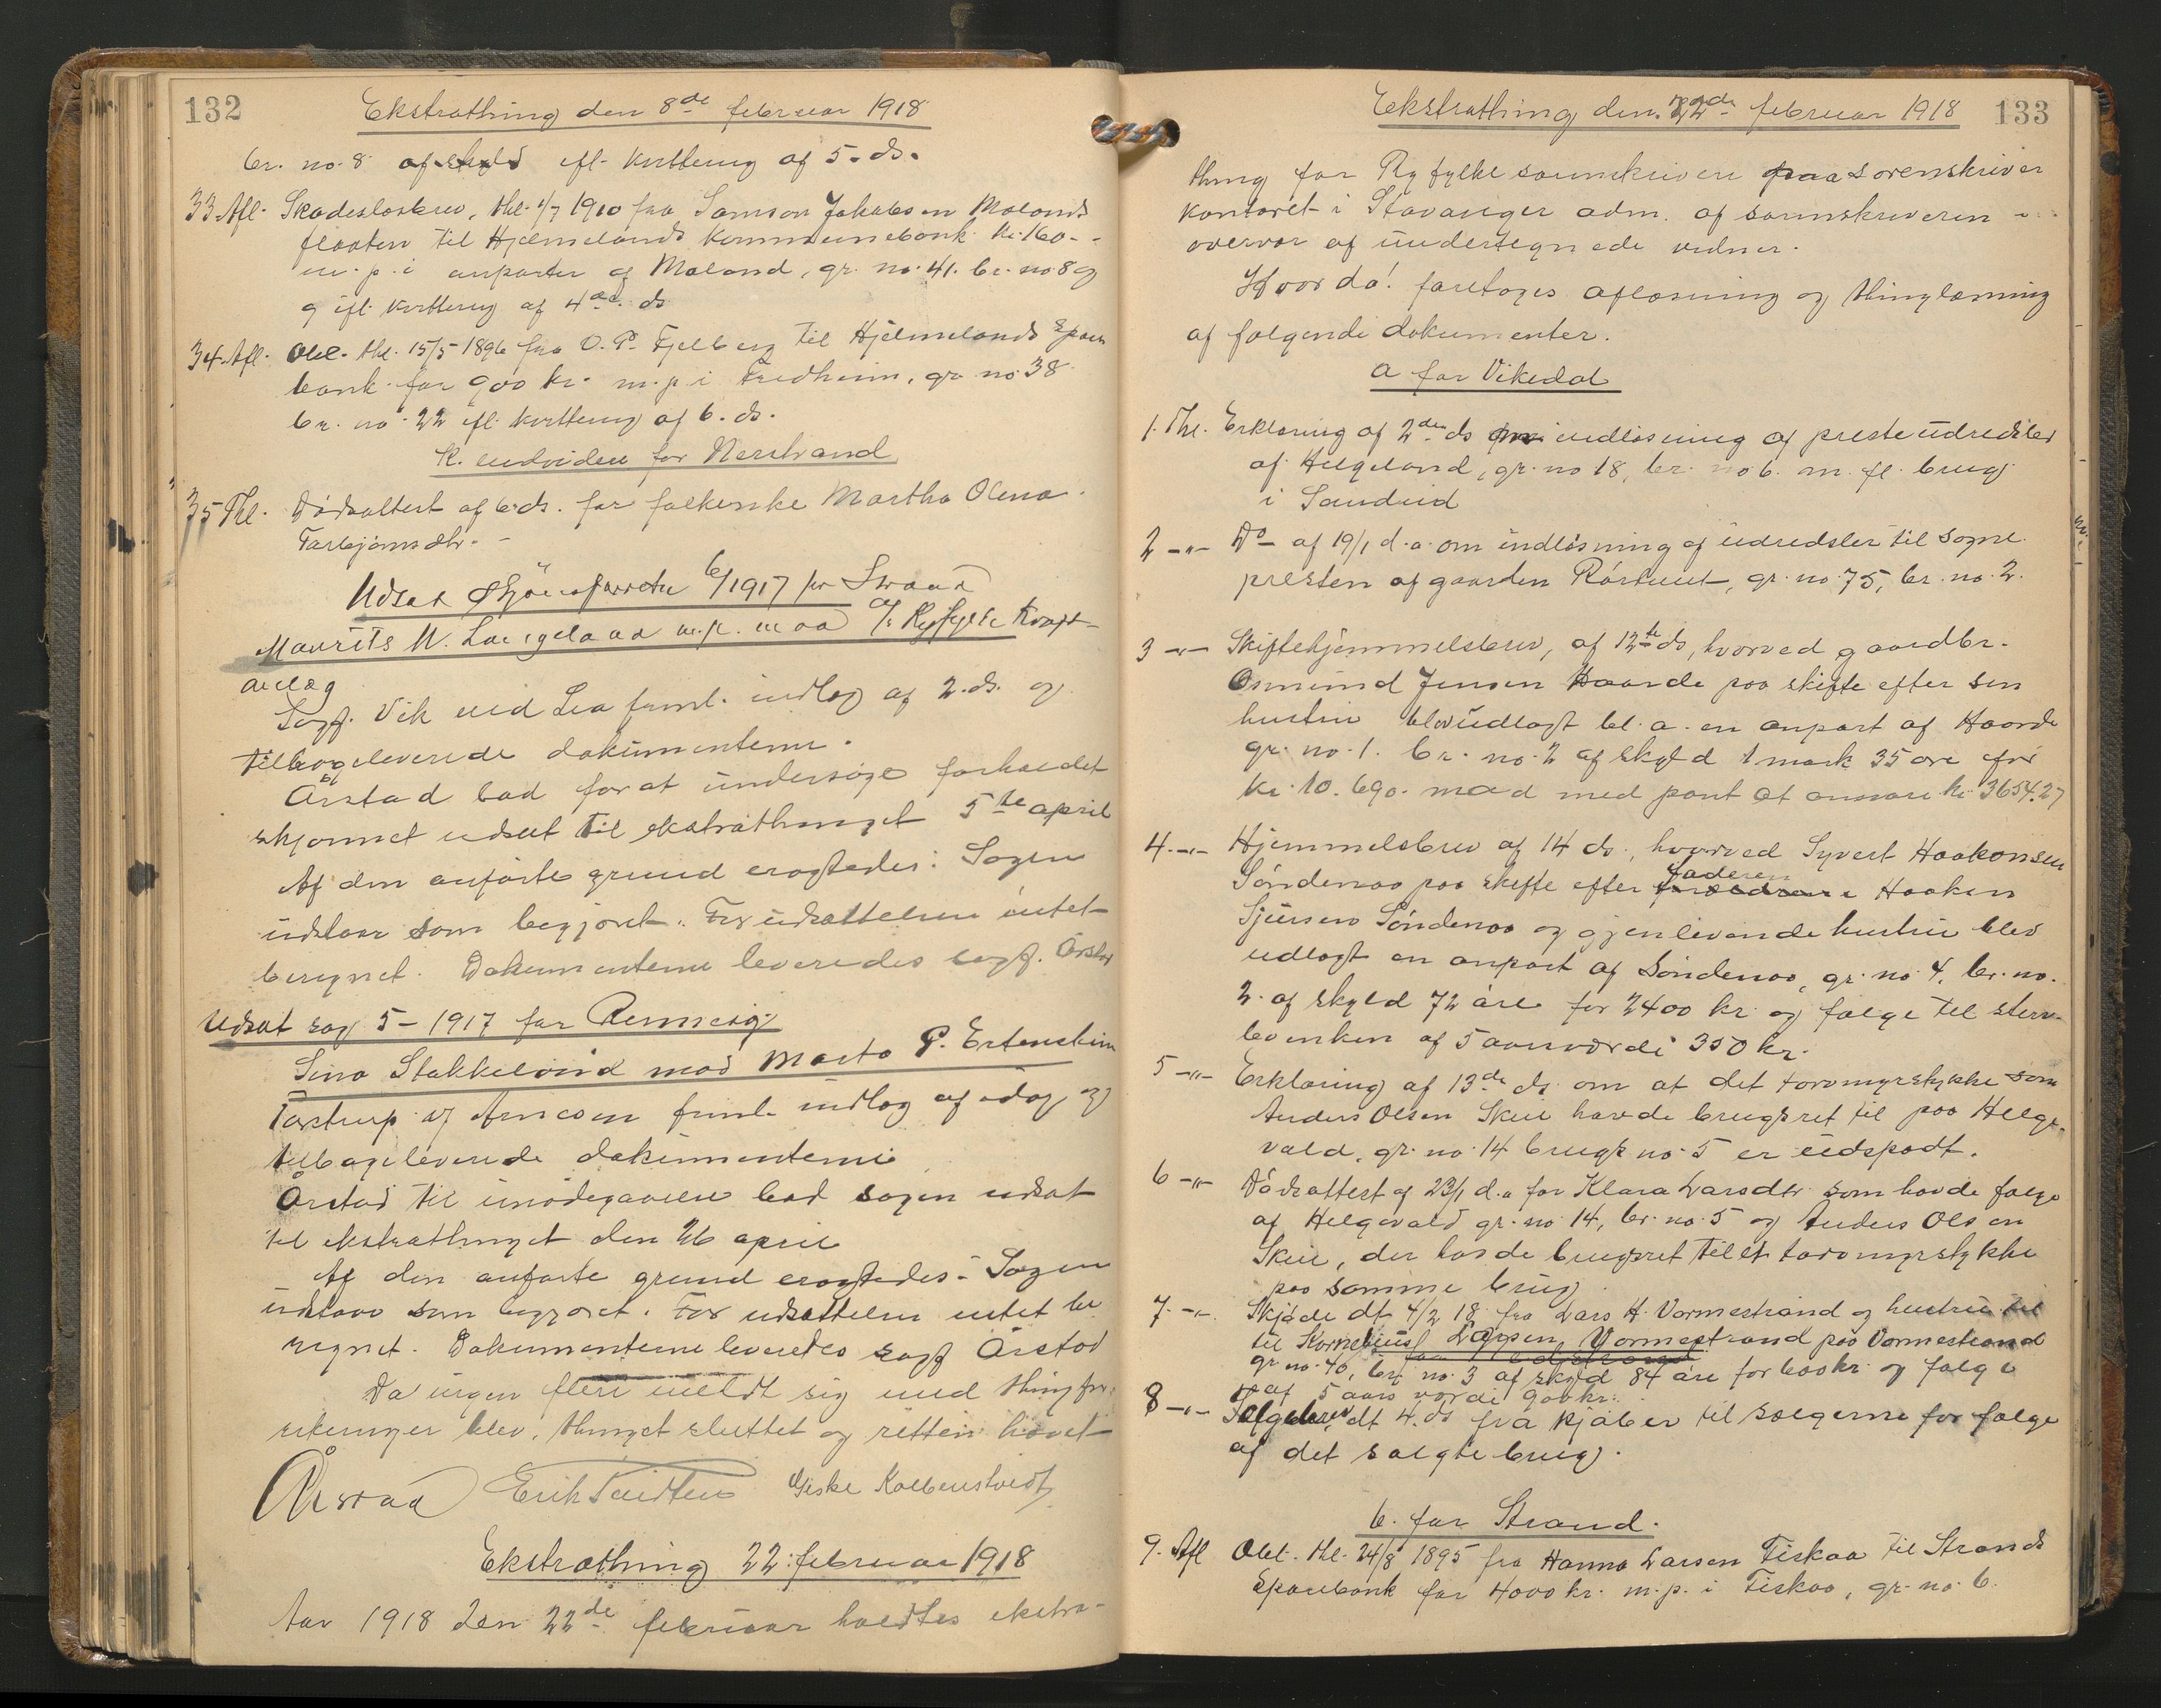 132
Ekstrathing den 8de februar 1918
br. no. 8 af skyld ifl. kvittering af 5. ds.
33 Afl. Skadesløsbrev, thl. 1/7 1910 fra Samson Jakobsen Molands
flaaten til Hjelmelands Kommunebank kr. 160.-
m. p. i anparter af Moland, gr. no. 41. br. no. 8 og
9 ifl. kvittering af 4de ds
34. Afl. Obl. thl. 15/5 1896 fra O. P. Fjelberg til Hjelmelands Spare
bank for 900 kr. m. p. i Fredheim, gr. no 38
br. no. 22 ifl. kvittering af 6. ds.
K. endvidere for Nerstrand
35 Thl. Dødsattest af 6. ds. for folkerike Martha Olena
Torbjørnsdtr. -
Udsat skjønsforretn 6/1917 for Strand
Maurits N. Langeland m. fl. mod A/s Ryfylke Kraft-
anlæg
Sagf. Vik ved Lea freml. indlæg af 2. ds. og
tilbageleverede dokumenterne.
Årstad bad for at undersøge forholdet
skjønnet udsat til ekstrathinget 5te april
Af den anførte grund eragtedes: Sagen
udstaar som begjæret. For udsættelsen intet
beregnet. Dokumenterne leveredes sagf. Årstad
Udsat sag 5 - 1917 for Rennesø
Sina Stakkeland mod Marta P. Ertenstein
Tastrup v/ Arnesen freml. indlæg af idag og
tilbageleverede dokumenterne
Årstad til imødegaaelse bad sagen udsat
til ekstrathinget den 26 april
Af den anførte grund eragtedes: Sagen
udstaar som begjæret. For udsættelsen intet be
regnet. Dokumenterne leveredes sagf Årstad
Da ingen flere meldt sig med thingfor-
retninger blev, thinget sluttet og retten hævet
Årstad Erik Giske Kolbenstvedt
Ekstrathing 22. februar 1918
Aar 1918 den 22de februar holdtes ekstra-
Ekstrathing den 22de februar 1918
133
thing for Ryfylke sorenskriveri paa sorenskriver
kontoret i Stavanger adm. af sorenskriveren i
overvær af undertegnede vidner.
Hvorda! foretoges aflæsning og thinglæsning
af følgende dokumenter.
a for Vikedal
1. Thl. Erklæring af 2den ds om indløsning af presteudredsler
af Helgeland, gr. no 18, br. no 6. m. fl. brug
i Sandeid
2 -"- Do - af 19/1 d. a. om indløsning af udredsler til sogne
presten af gaarden Rørtveit, gr. no. 75, br. no. 2.
3 -"- Skiftehjemmelsbrev, af 12te ds, hvorved gaardbr.
Osmund Jensen Haarde paa skifte efter sin
hustru blev udlagt bl. a. en anpart af Haarde
gr. no. 1. br. no. 2 af skyld 1 mark 35 øre for
kr. 10. 690. mod med pant at ansvare kr. 3654.27
4. -"- Hjemmelsbrev af 14 ds., hvorved Syvert Haakonsen
Søndenaa paa skifte efter faderen Haaken
Sjursen Søndenaa og gjenlevende hustru blev
udlagt en anpart af Søndenaa, gr. no 4. br. no.
2. af skyld 72 øre for 2400 kr. og følge til sterv-
boenken af 5 aarsværdi 350 kr.
5 -"- Erklæring af 13de ds om at det torvmyrstykke som
Anders Olsen Skeie havde brugsret til paa Helge-
vald, gr. no. 14 brugs no. 5 er udspadt.
6 -"- Dødsattest af 23/1 d. a for Klara Larsdtr. som havde følge
af Helgevald gr. no. 14, br. no. 5 og Anders Olsen
Skeie, der havde brugsret til et torvmyrstykke
paa samme brug
7. -"- Skjøde dt 4/2 18 fra Lars H. Vormestrand og hustru til
til Kornelius Larsen Vormestrand paa Vormestrand
gr no. 40, br. no. 3 af skyld 84 øre for 6000 kr. og følge
af 5 aars værdi 900 kr.
8 -"- Følgebrev dt 4. ds fra kjøber til sælgerne for følge
af det solgte brug.
b. for Strand.
9. Afl Obl. thl. 24/8 1895 fra Hanna Larsen Fiskaa til Strands
Sparebank for 4000 kr. m. p. i Fiskaa, gr. no. 6.